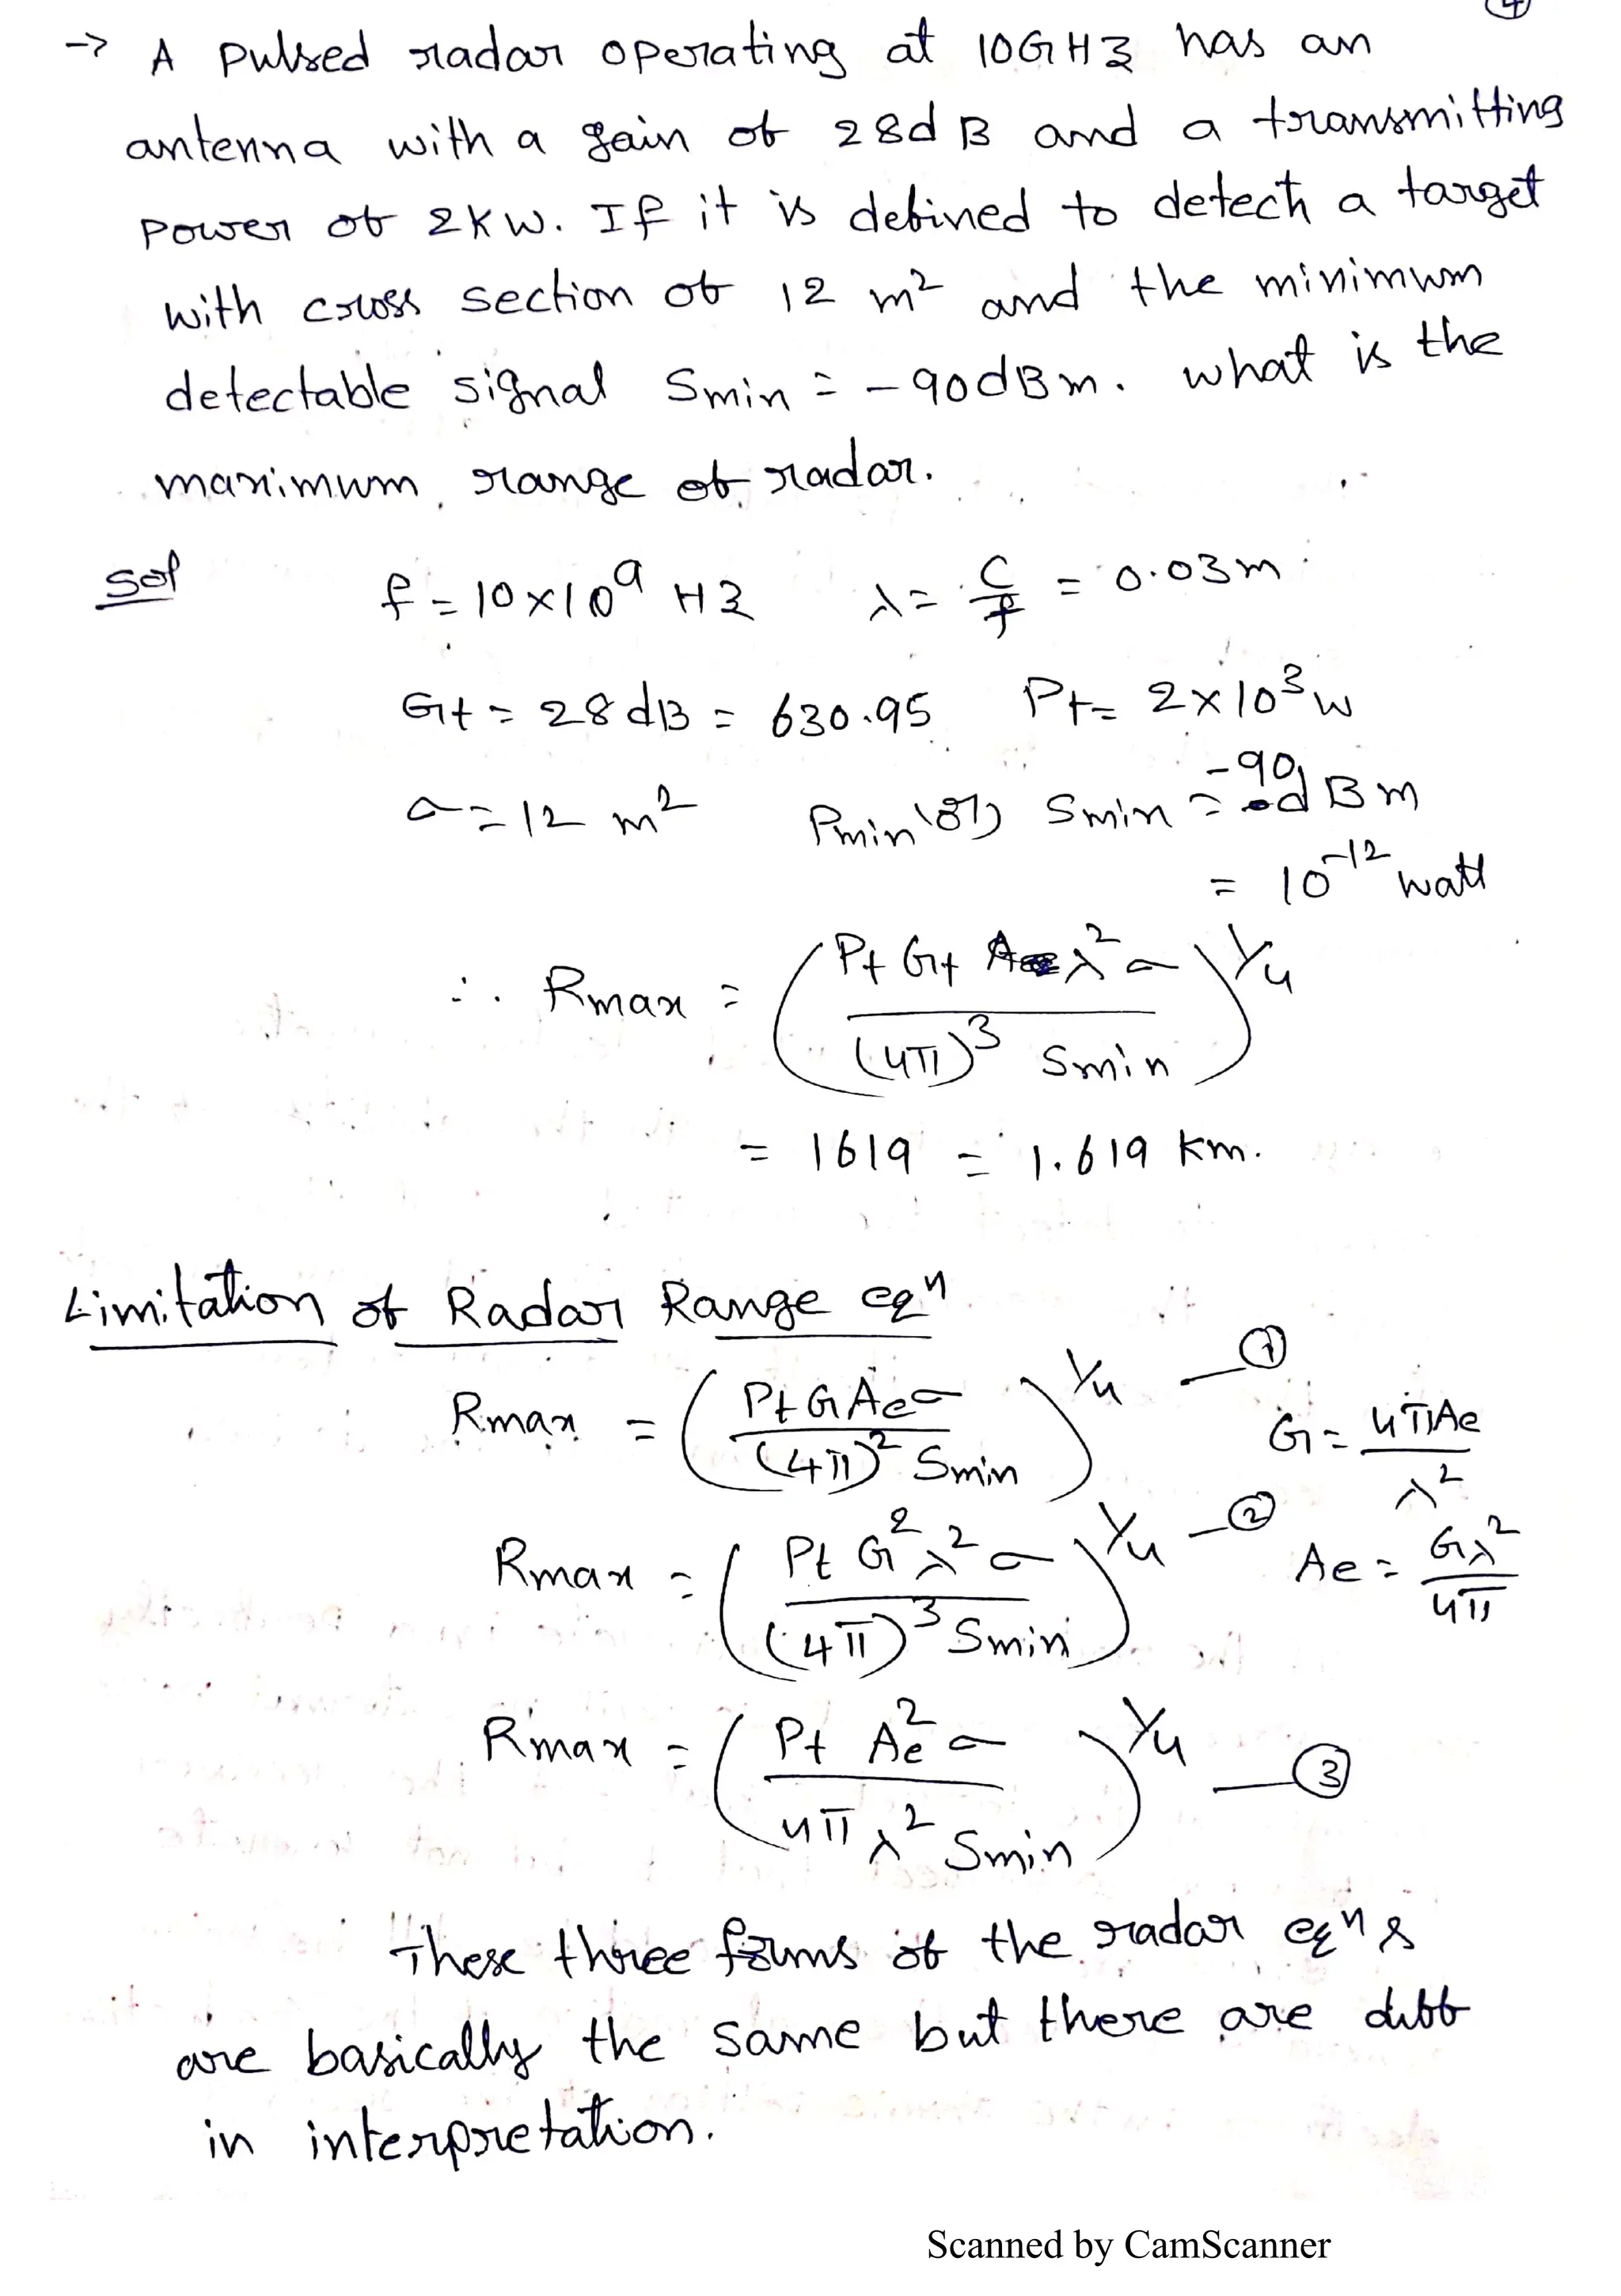 4
→ A pulsed radar operating at 10GHz has an
antenna with a gain of 28dB and a transmitting
power of 2KW. If it is defined to detech a target
with cross section of 12 m² and the minimum
detectable signal Smin = -90dBm. what is the
maximum range of radar.
Sol f = 10×10⁹ Hz λ = C/f = 0.03m
Gt = 28dB = 630.95 Pt = 2×10³ w
σ = 12 m² Pmin (or) Smin = -90dBm
= 10⁻¹² watt
∴ Rmax = (Pt Gt λ² σ / (4π)³ Smin)^1/4
= 1619 = 1.619 Km.
Limitation of Radar Range eqⁿ
Rmax = (Pt G Ae σ / (4π)² Smin)^1/4 — ①
G = 4πAe / λ²
Rmax = (Pt G² λ² σ / (4π)³ Smin)^1/4 — ②
Ae = Gλ² / 4π
Rmax = (Pt Ae² σ / 4π λ² Smin)^1/4 — ③
These three forms of the radar eqⁿs
are basically the same but there are diff
in interpretation.
Scanned by CamScanner